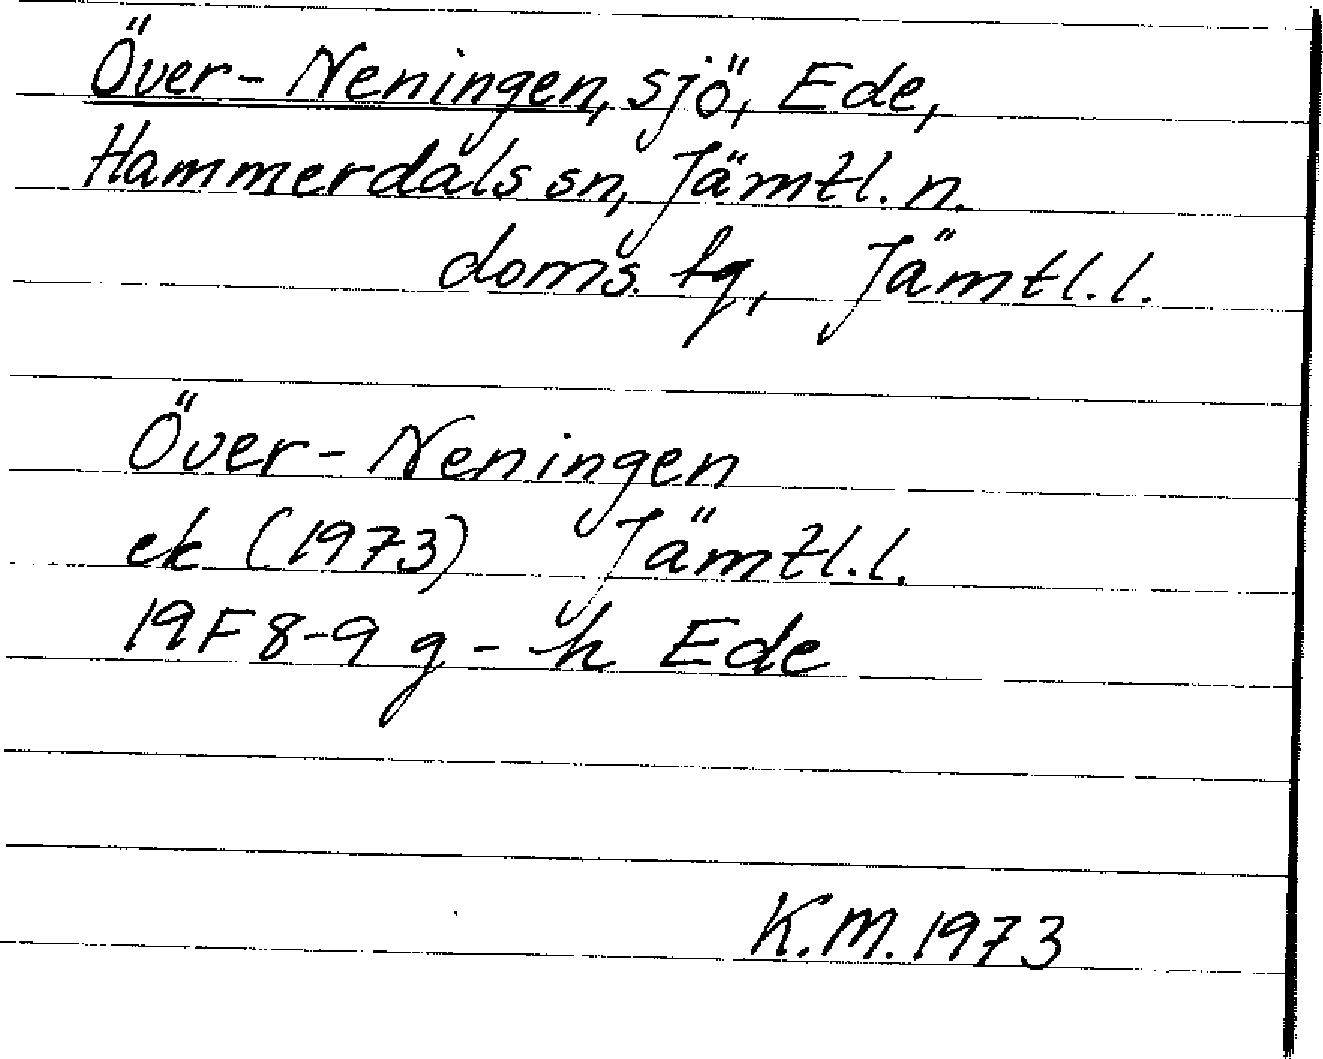 Över-Neningen, sjö, Ede,
Hammerdals sn, Jämtl. n.
doms. tg, Jämtl. l.
Över-Neningen
ek (1973) Jämtl. l.
19F 8-9 g-h Ede
K.M. 1973